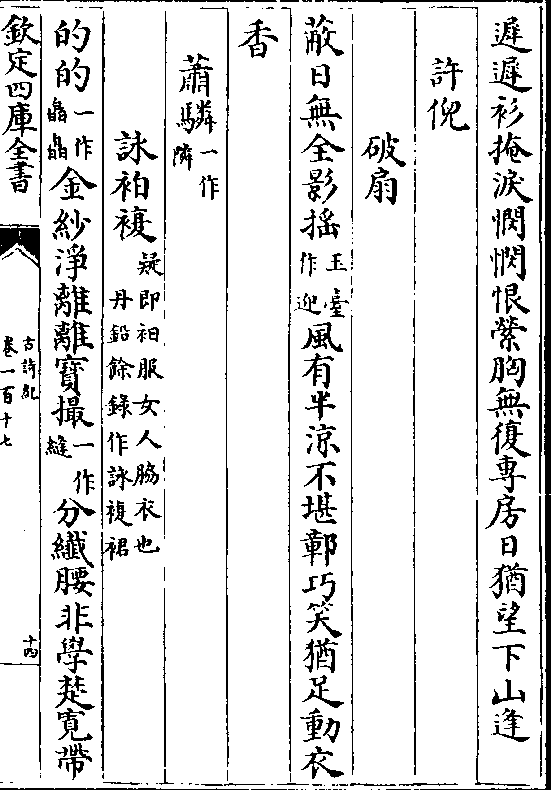 遲遲衫掩淚憫憫恨縈胸無復專房日猶望下山逢
許倪
破扇
蔽日無全影搖玉臺作迎風有半涼不堪鄣巧笑猶足動衣
香
蕭驎一作隣
詠袙複疑即袙服女人脇衣也丹鉛餘錄作詠複裙
的的一作皛皛金紗淨離離寶撮一作縫分纖腰非學楚寛帶
欽定四庫全書
古詩紀
卷一百十七
十四